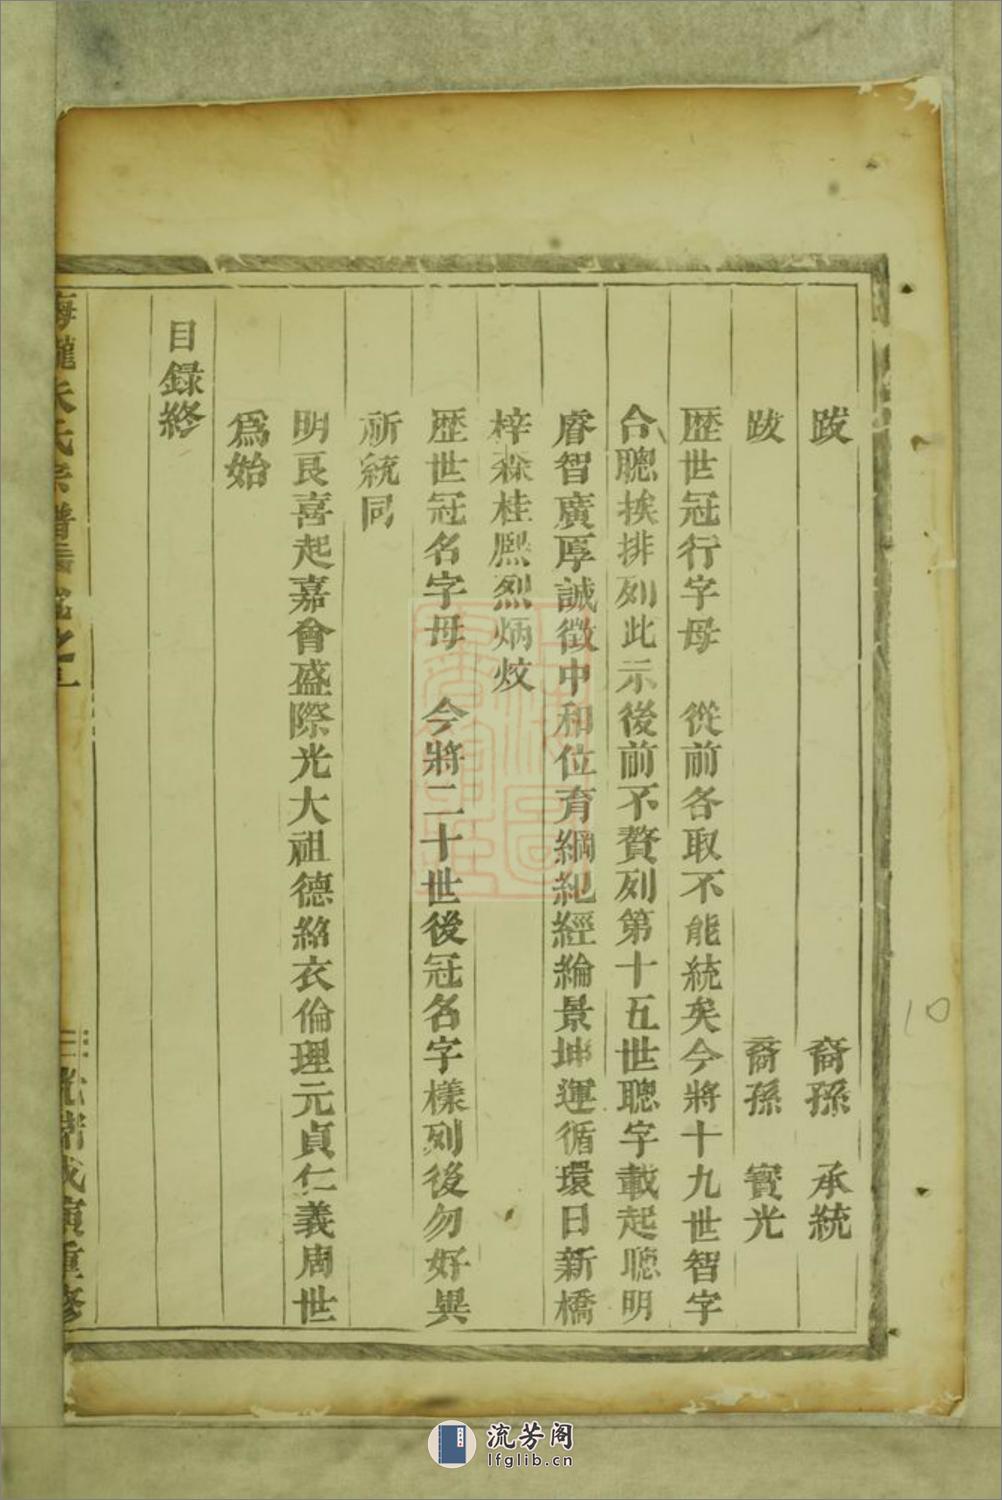 跋　裔孫　承統
跋　裔孫　實光
歷世冠行字母　從前各取不能統矣今將十九世智字
合聰挨排列此示後前不贅列第十五世聰字載起聰明
睿智廣厚誠徵中和位育綱紀經綸景坤運循環日新橋
梓森桂熙烈炳炆
歷世冠名字母　今將二十世後冠名字樣列後勿好異
祈統同
明良喜起嘉會盛際光大祖德紹衣倫理元貞仁義周世
爲始
目錄終
朱氏宗譜
重修
10
流芳阁
lfglib.cn